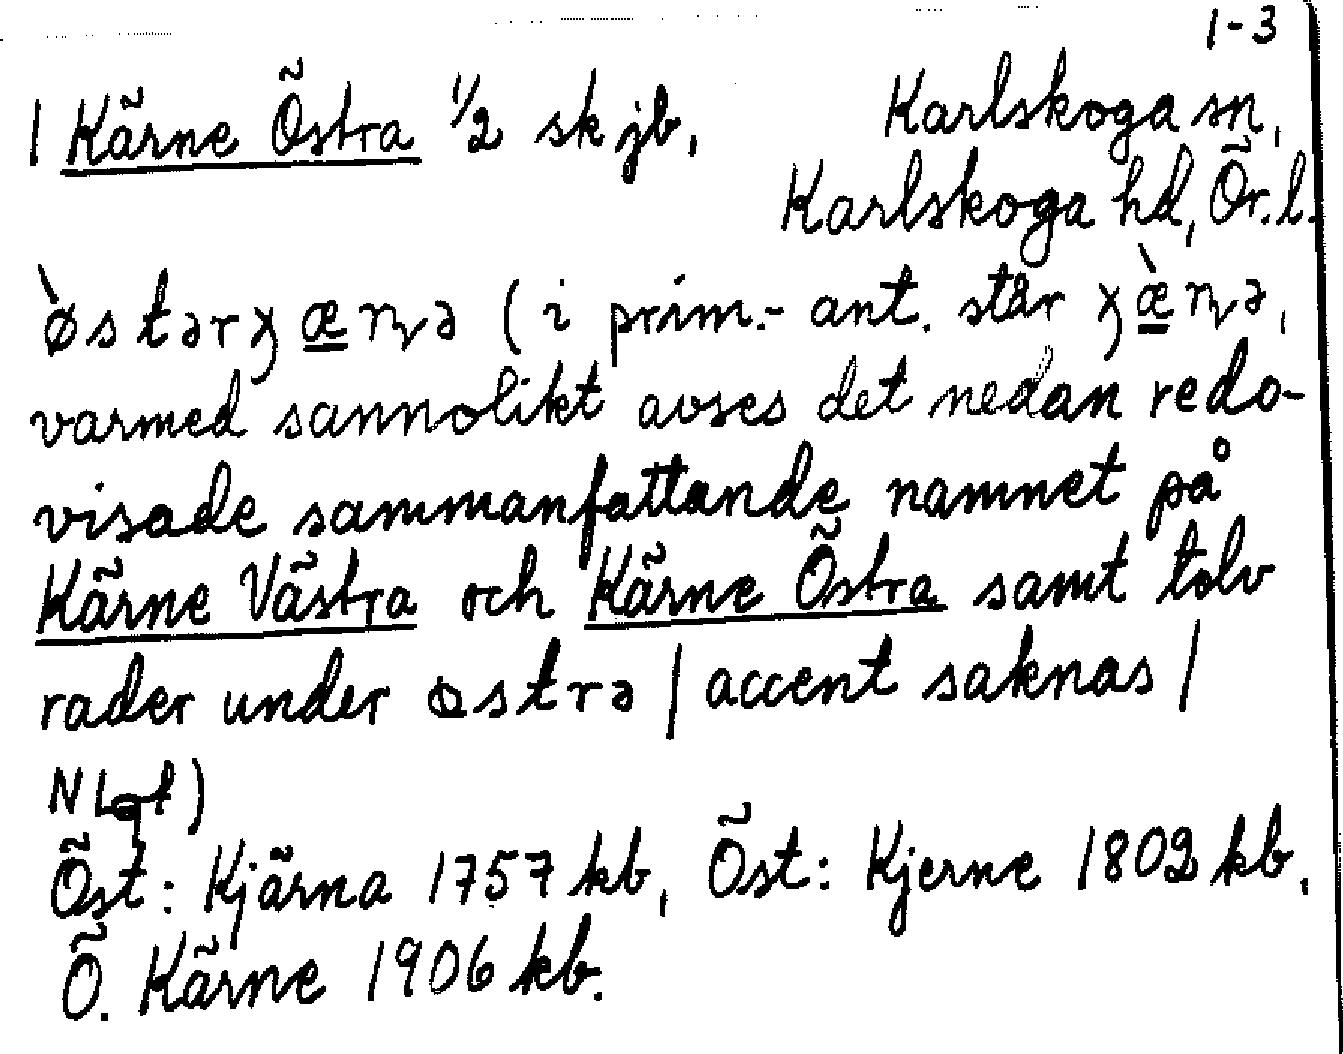 1-3
1 Kärne Östra 1/2 skjb, Karlskoga sn,
Karlskoga hd, Ör.l.
ø̀stərχæ̱ɳə (i prim.-ant. står χæ̱̀ɳə,
varmed sannolikt avses det nedan redo-
visade sammanfattande namnet på
Kärne Västra och Kärne Östra samt tolv
rader under østrə / accent saknas /
NLgt)
Öst: Kjärna 1757 kb, Öst: Kjerne 1802 kb,
Ö. Kärne 1906 kb.